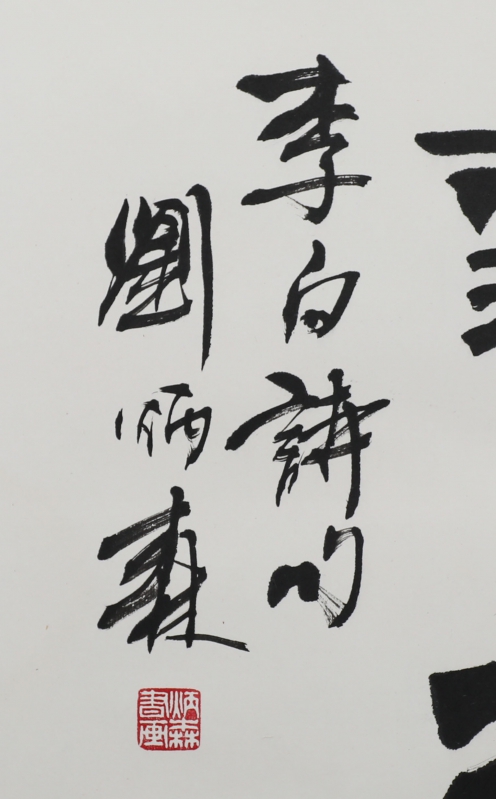 李白詩句
劉炳森
炳森書画